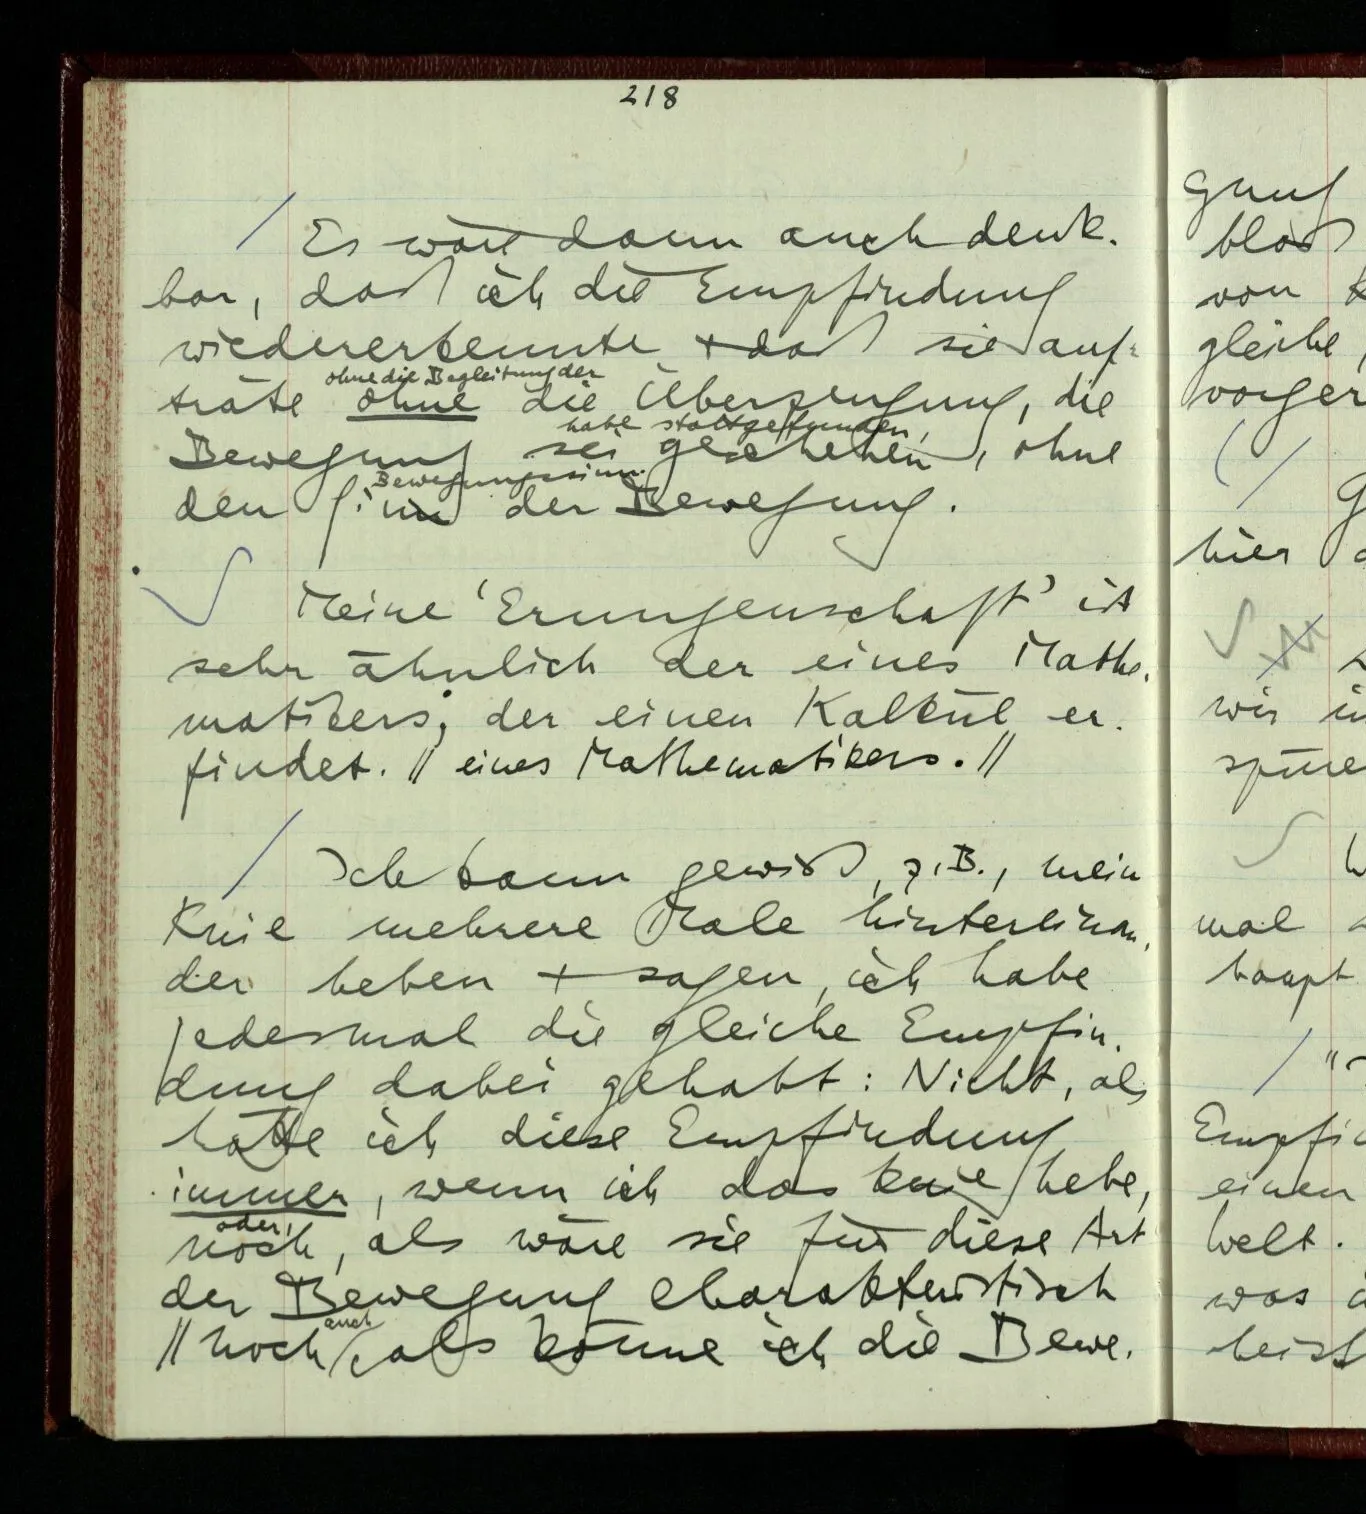 218
Es wäre dann auch denk-
bar, daß ich die Empfindung
wiedererkennte + daß sie auf-
ohne die Begleitung der
träte ohne die Überzeugung, die
habe stattgefunden,
Bewegung sei geschehen, ohne
Bewegungssinn.
den Sinn der Bewegung.
Meine 'Errungenschaft' ist
sehr ähnlich der eines Mathe-
matikers, der einen Kalkül er-
findet. || eines Mathematikers. ||
Ich kann gewiß, z.B., mein
Knie mehrere Male hintereinan-
der heben + sagen, ich habe
jedesmal die gleiche Empfin-
dung dabei gehabt: Nicht, als
hätte ich diese Empfindung
immer, wenn ich das Knie hebe,
oder,
noch, als wäre sie für diese Art
der Bewegung charakteristisch
auch
|| noch, als könne ich die Bewe-
bloß
von
gleiche,
hier
wir
mal
haupt
einen
Welt.
was